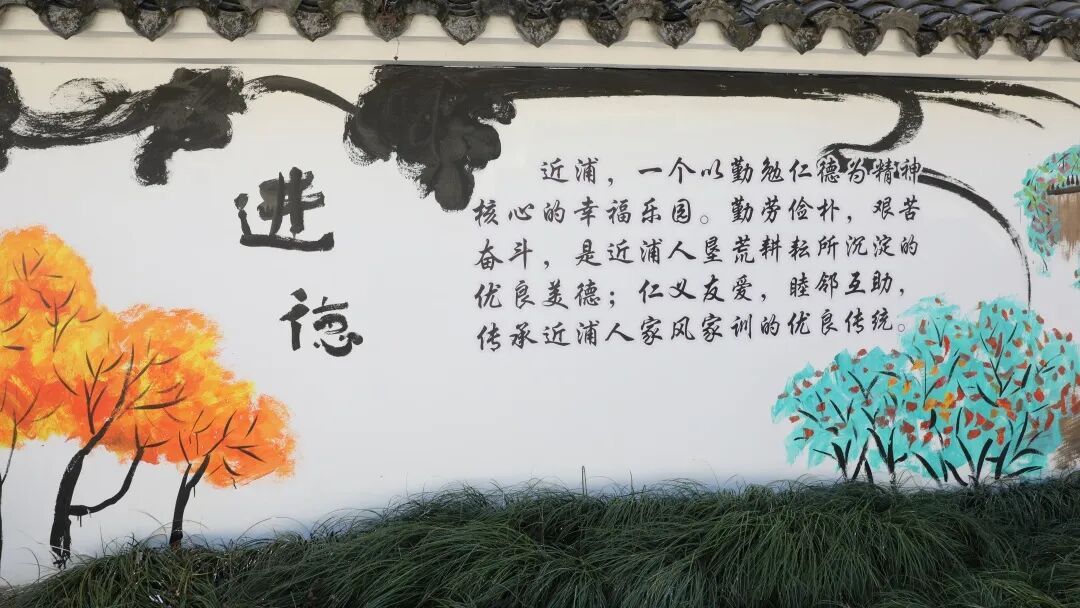 进德
近浦，一个以勤勉仁德为精神
核心的幸福乐园。勤劳俭朴，艰苦
奋斗，是近浦人垦荒耕耘所沉淀的
优良美德；仁义友爱，睦邻互助，
传承近浦人家风家训的优良传统。